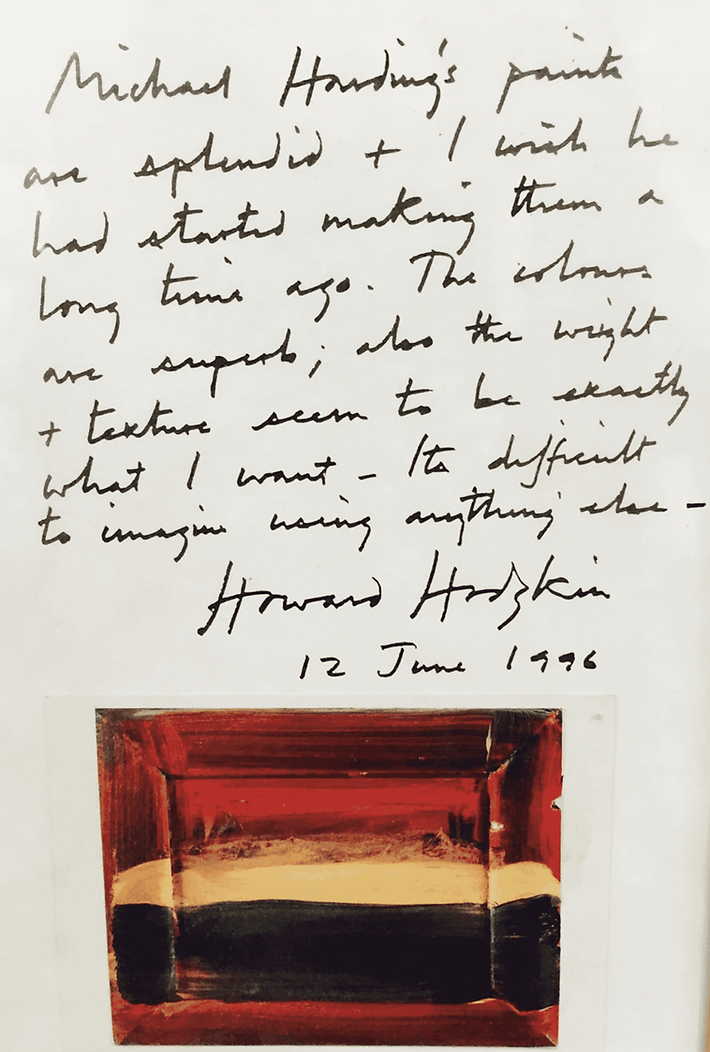 Michael Harding's paints
are splendid + I wish he
had started making them a
long time ago. The colours
are superb; also the weight
+ texture seem to be exactly
what I want – Its difficult
to imagine using anything else –
Howard Hodgkin
12 June 1996